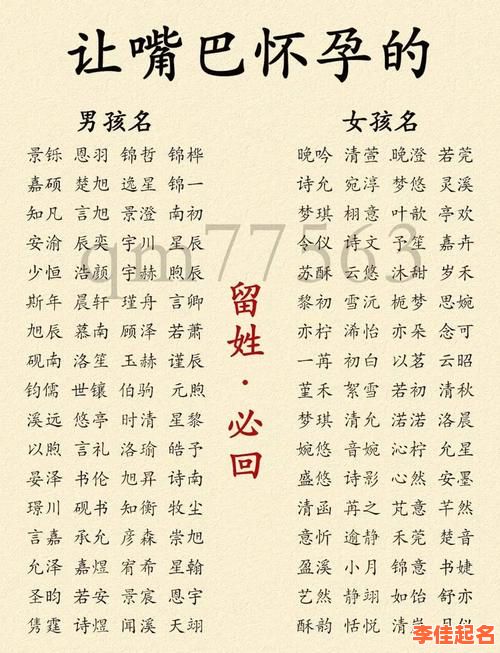 让嘴巴怀孕的
男孩名
景铄 恩羽 锦哲 锦桦
嘉硕 楚旭 逸星 锦一
知凡 言旭 景澄 南初
安渝 辰奕 宇川 星辰
少恒 浩颜 宇赫 煦辰
斯年 晨轩 瑾舟 言卿
旭辰 慕南 顾泽 若萧
砚南 洛笙 玉赫 谨辰
钧儒 世镶 伯驹 元煦
溪远 悠亭 时清 星黎
以煦 言礼 洛瑜 皓予
晏泽 书伦 旭昇 诗南
璟川 砚书 知衡 牧尘
言嘉 承允 彦森 崇旭
允泽 嘉煜 宥希 星翰
圣昀 若安 景宸 恩宇
隽霆 诗煜 闻溪 天翊
女孩名
晚吟 清萱 晚澄 若莞
诗允 宛淳 梦悠 灵溪
梦琪 栩意 叶歆 亭欢
令仪 诗文 予笙 嘉卉
苏酥 云悠 沐甜 岁禾
黎初 雪沅 栀梦 思婉
亦柠 浠怡 亦朵 念可
一苒 初白 以茗 云昭
堇禾 絮雪 若初 清秋
梦琪 清允 渃渃 洛晨
婉悠 音婉 沁柠 允星
盛悠 诗影 心然 安墨
清函 苒之 芃意 芊然
意忻 逾静 禾莞 楚音
盈溪 小月 锦意 书婕
艺然 静翊 如怡 舒亦
酥韵 恬悦 清岚 月似
留姓·必回
qm77563
李佳起名